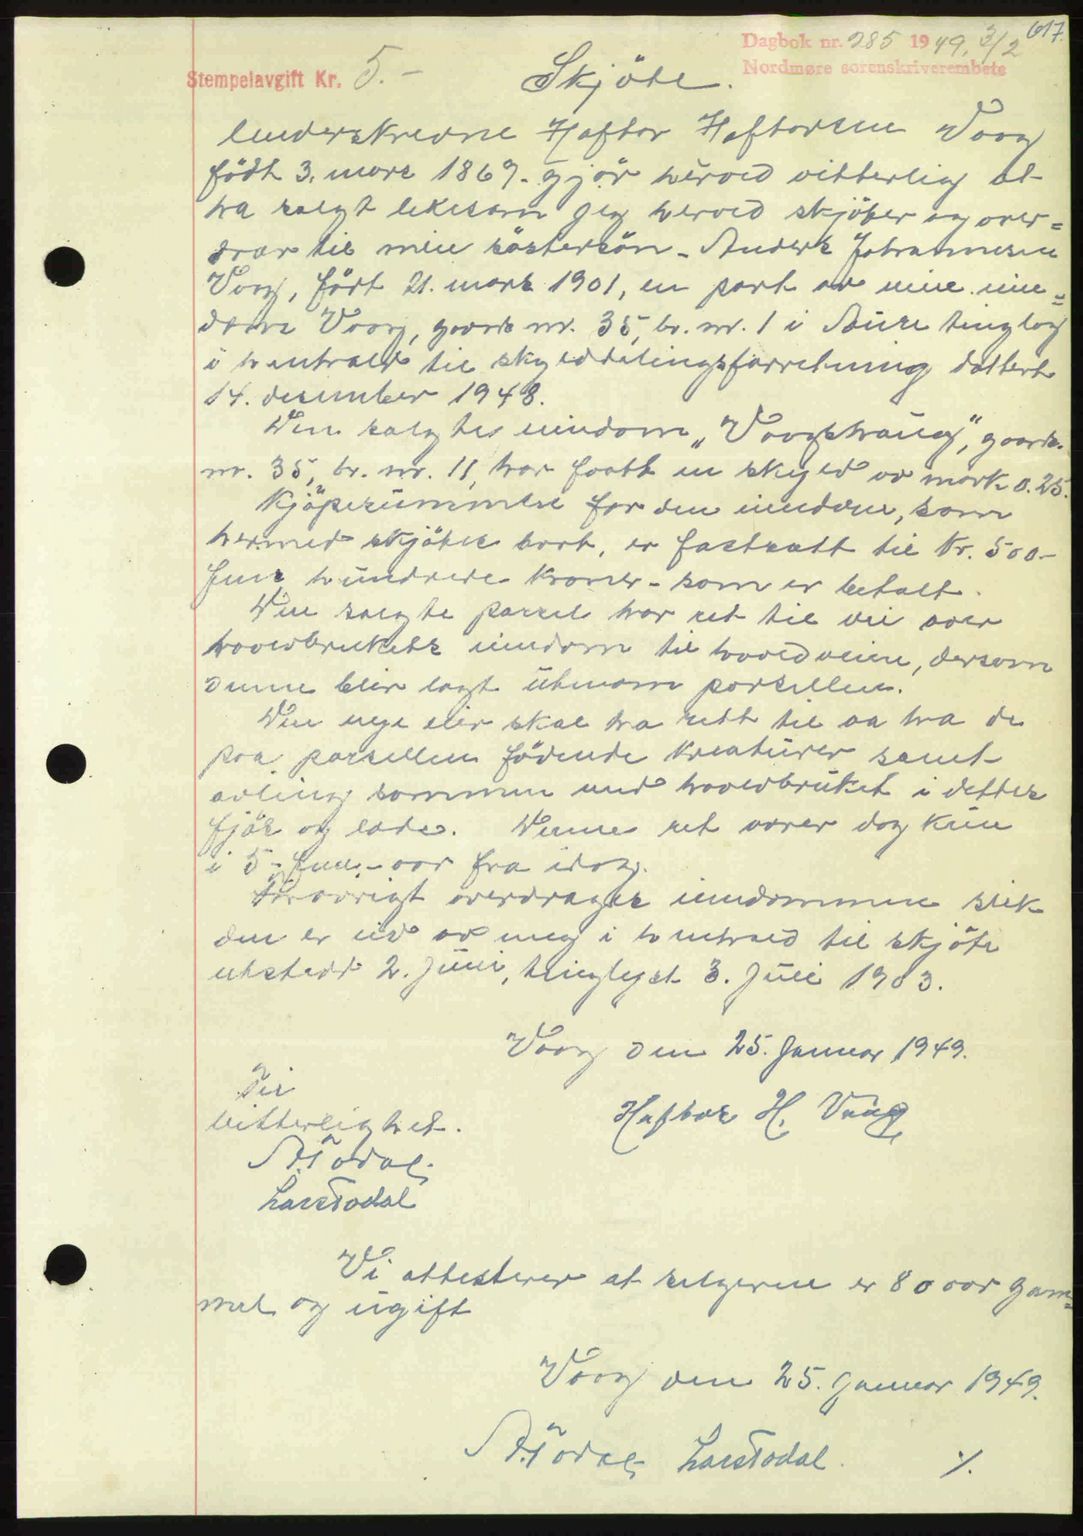 617.
Dagbok nr. 285 1949, 3/2
Nordmøre sorenskriverembete
Stempelavgift Kr. 5.-
Skjöte.
Underskrevne Haftor Haftorsen Vaag
födt 3. mars 1869. gjör herved vitterlig at
ha solgt likesom jeg herved skjöter og over=
drar til min söstersön - Anders Johannesen
Vaag, födt 21. mars 1901, en part av min ein=
dom Vaag, gaards nr. 35, br. nr. 1 i Aure tinglag
i henhold til skylddelingsforretning datert
14. desember 1948.
Den solgte eindom „Vaagshaug", gaards.
nr. 35, br. nr. 11, har faatt en skyld av mark 0.25.
Kjöpesummen for den eindom, som
hermed skjötes bort, er fastsatt til Kr. 500-
fem hundrede kroner - som er betalt.
Den solgte parsel har ret til vei over
hovedbrukets eindom til hovedveien, dersom
denne blir lagt utenom parsellen.
Den nye eier skal ha rett til aa ha de
paa parsellen födende kreaturer samt
avling sammen med hovedbruket i dettes
fjös og lade. Denne ret varer dog kun
i 5 - fem - aar fra idag.
Foravrigt overdrages eindommen slik
den er eid av meg i henhold til skjöte
utstedt 2. juni, tinglyst 3. Juli 1903.
Vaag den 25. Januar 1949.
Til
vitterlighet.
Haftor H. Vaag
A. Todal
Lars Todal
Vi attesterer at selgeren er 80 aar gam=
mel og ugift
Vaag den 25. januar 1949.
A. Todal Lars Todal. ./.